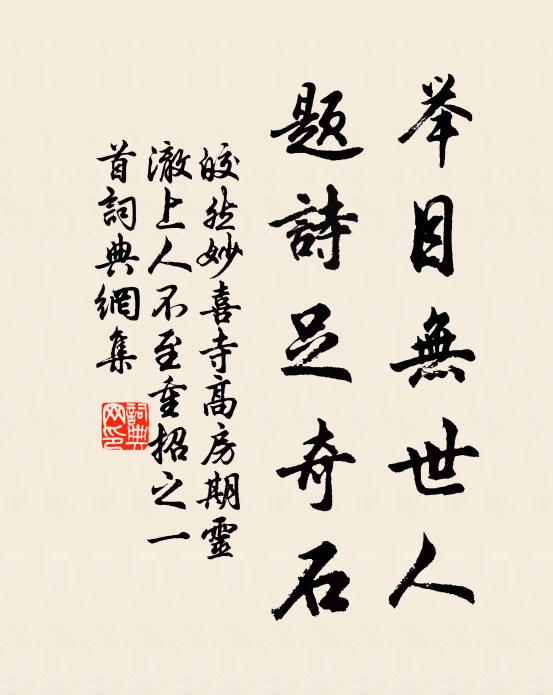 举目無世人
題詩足奇石
皎然妙喜寺高房期靈
澈上人不至重招之一
首詞典網集
詞典
网印